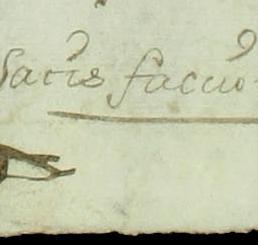 Satis facuo